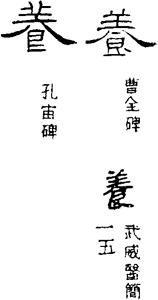 養
曹全碑
養
武威醫簡
一五
養
孔宙碑